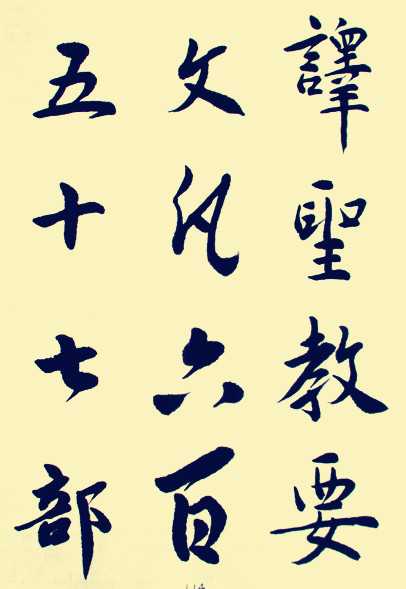 譯聖教要
文凡六百
五十七部